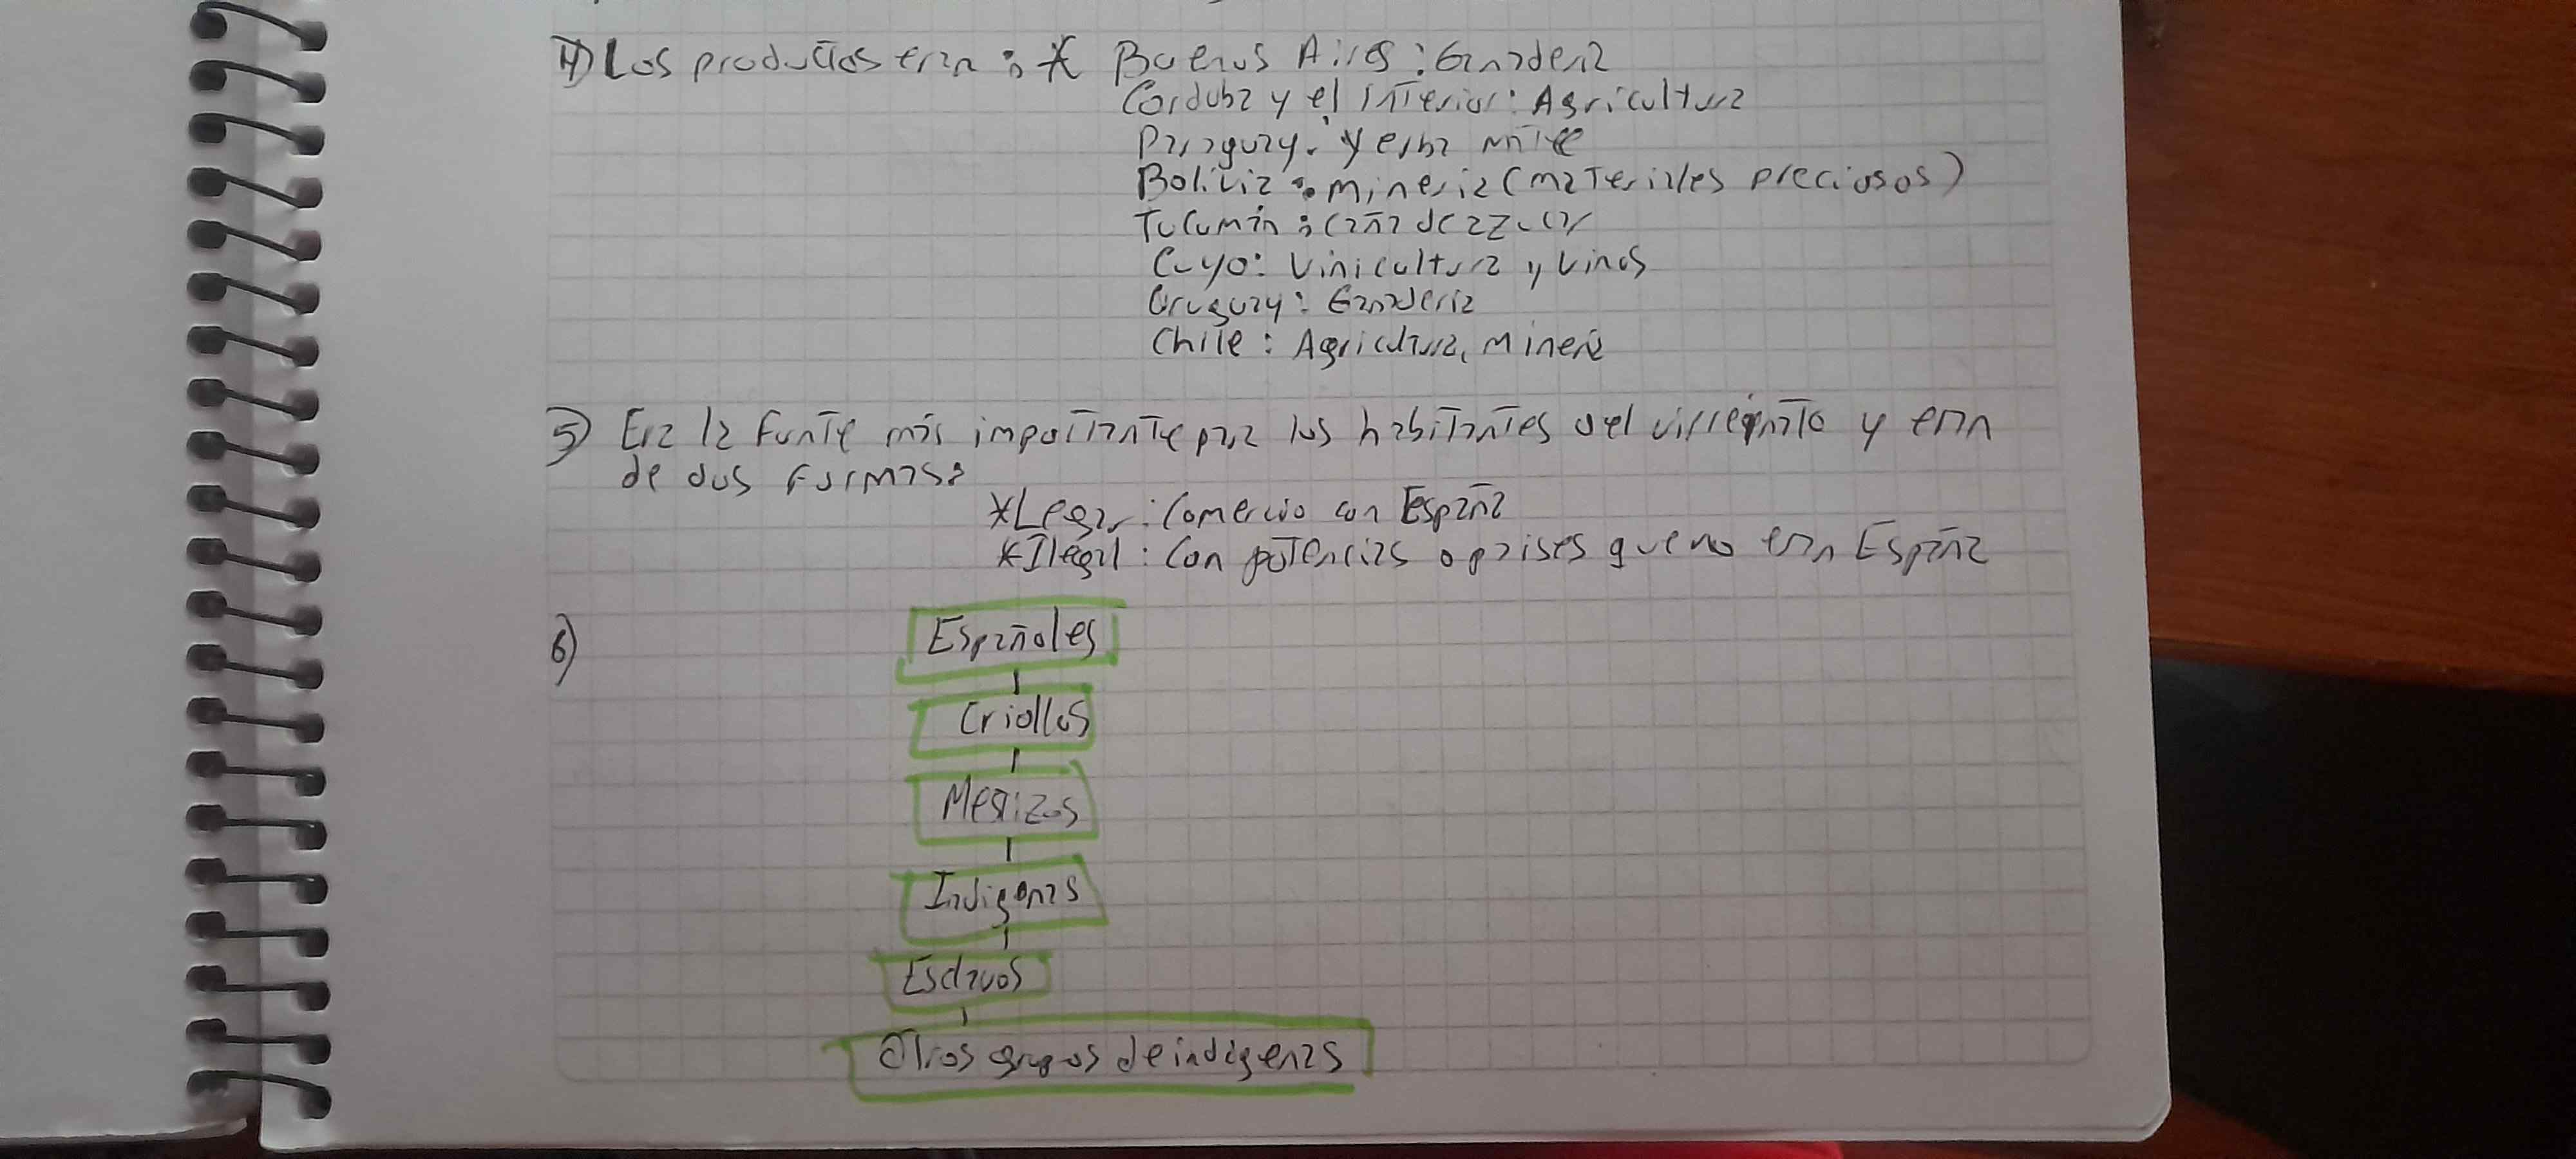 4) Los productos eran : * Buenos Aires : Ganaderia
Cordoba y el interior : Agricultura
Paraguay : Yerba mate
Bolivia : mineria (materiales preciosos)
Tucumán : caña de azucar
Cuyo : Vinicultura y vinos
Uruguay : Ganaderia
Chile : Agricultura, Mineria
5) Era la funte más importante para los habitantes del virreinato y eran
de dos formas :
*Legar : Comercio con España
*Ilegal : Con potencias o paises que no eran España
6)
Españoles
Criollos
Mestizos
Indigenas
Esclavos
Otros grupos de indigenas